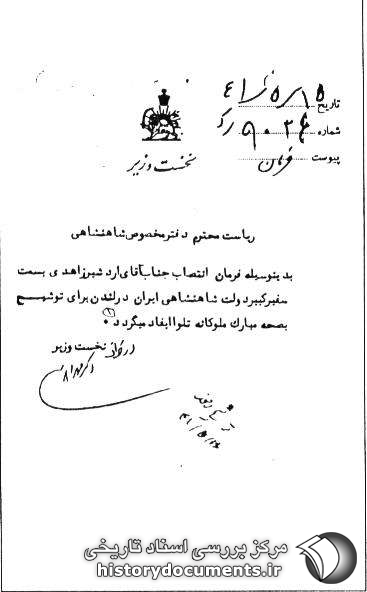 تاریخ ۴۱/۵/۱۵
شماره
پیوست فرمان
نخست وزیر
ریاست محترم دفتر مخصوص شاهنشاهی
بدینوسیله فرمان انتصاب جناب آقای اردشیر زاهدی بسمت
سفیر کبیر دولت شاهنشاهی ایران در لندن برای توشیح
بصحه مبارک ملوکانه تلوا ایفاد میگردد۰
از طرف نخست وزیر
مرکز بررسی اسناد تاریخی
historydocuments.ir